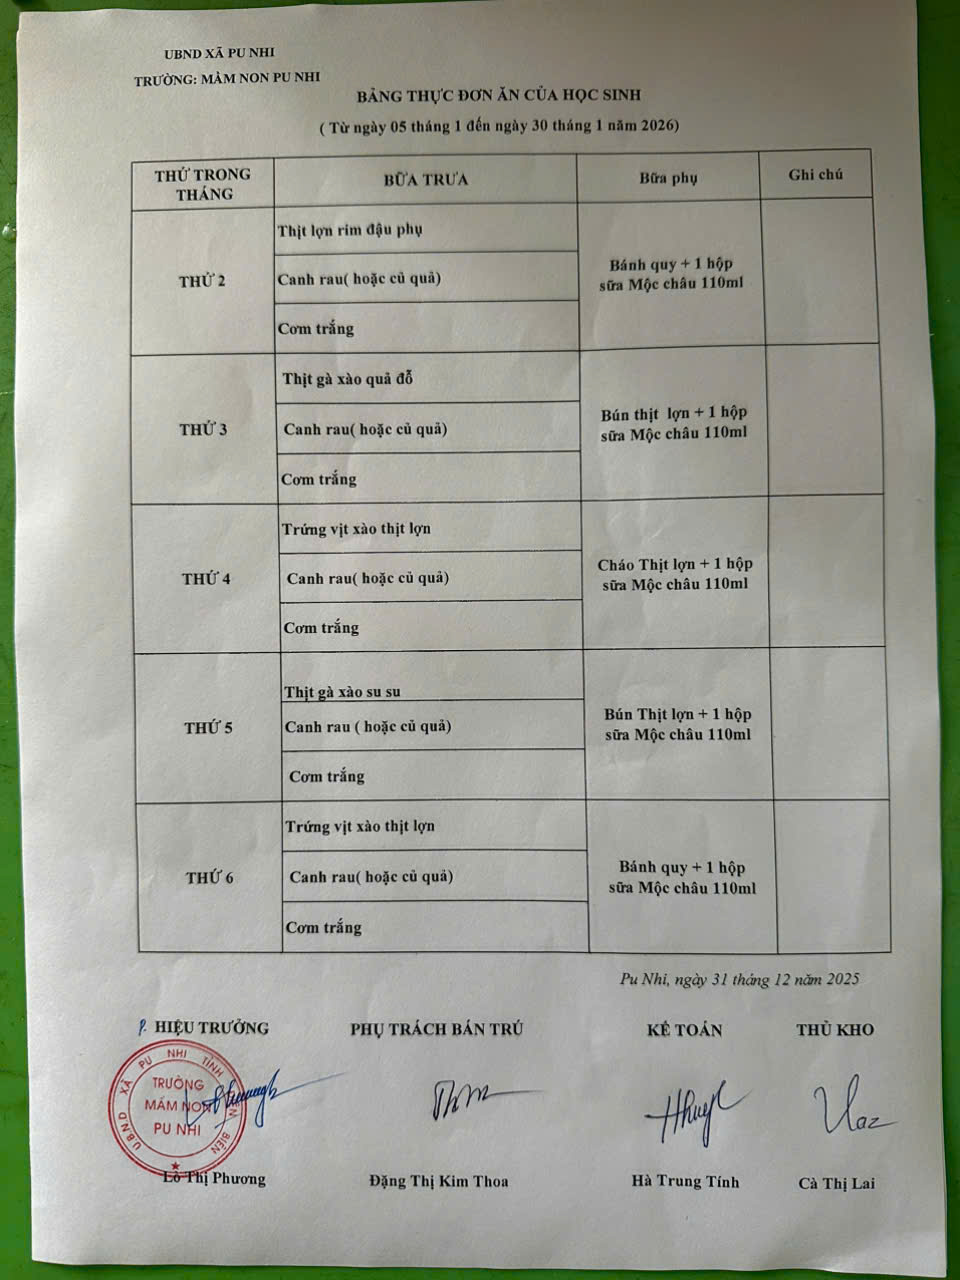 UBND XÃ PU NHI
TRƯỜNG: MẦM NON PU NHI
BẢNG THỰC ĐƠN ĂN CỦA HỌC SINH
( Từ ngày 05 tháng 1 đến ngày 30 tháng 1 năm 2026)
THỨ TRONG THÁNG
BỮA TRƯA
Bữa phụ
Ghi chú
THỨ 2
Thịt lợn rim đậu phụ
Canh rau( hoặc củ quả)
Cơm trắng
Bánh quy + 1 hộp
sữa Mộc châu 110ml
THỨ 3
Thịt gà xào quả đỗ
Canh rau( hoặc củ quả)
Cơm trắng
Bún thịt lợn + 1 hộp
sữa Mộc châu 110ml
THỨ 4
Trứng vịt xào thịt lợn
Canh rau( hoặc củ quả)
Cơm trắng
Cháo Thịt lợn + 1 hộp
sữa Mộc châu 110ml
THỨ 5
Thịt gà xào su su
Canh rau ( hoặc củ quả)
Cơm trắng
Bún Thịt lợn + 1 hộp
sữa Mộc châu 110ml
THỨ 6
Trứng vịt xào thịt lợn
Canh rau( hoặc củ quả)
Cơm trắng
Bánh quy + 1 hộp
sữa Mộc châu 110ml
Pu Nhi, ngày 31 tháng 12 năm 2025
P. HIỆU TRƯỞNG
PHỤ TRÁCH BÁN TRÚ
KẾ TOÁN
THỦ KHO
U.B.N.D XÃ PU NHI TỈNH ĐIỆN BIÊN
TRƯỜNG
MẦM NON
PU NHI
Lò Thị Phương
Đặng Thị Kim Thoa
Hà Trung Tính
Cà Thị Lai